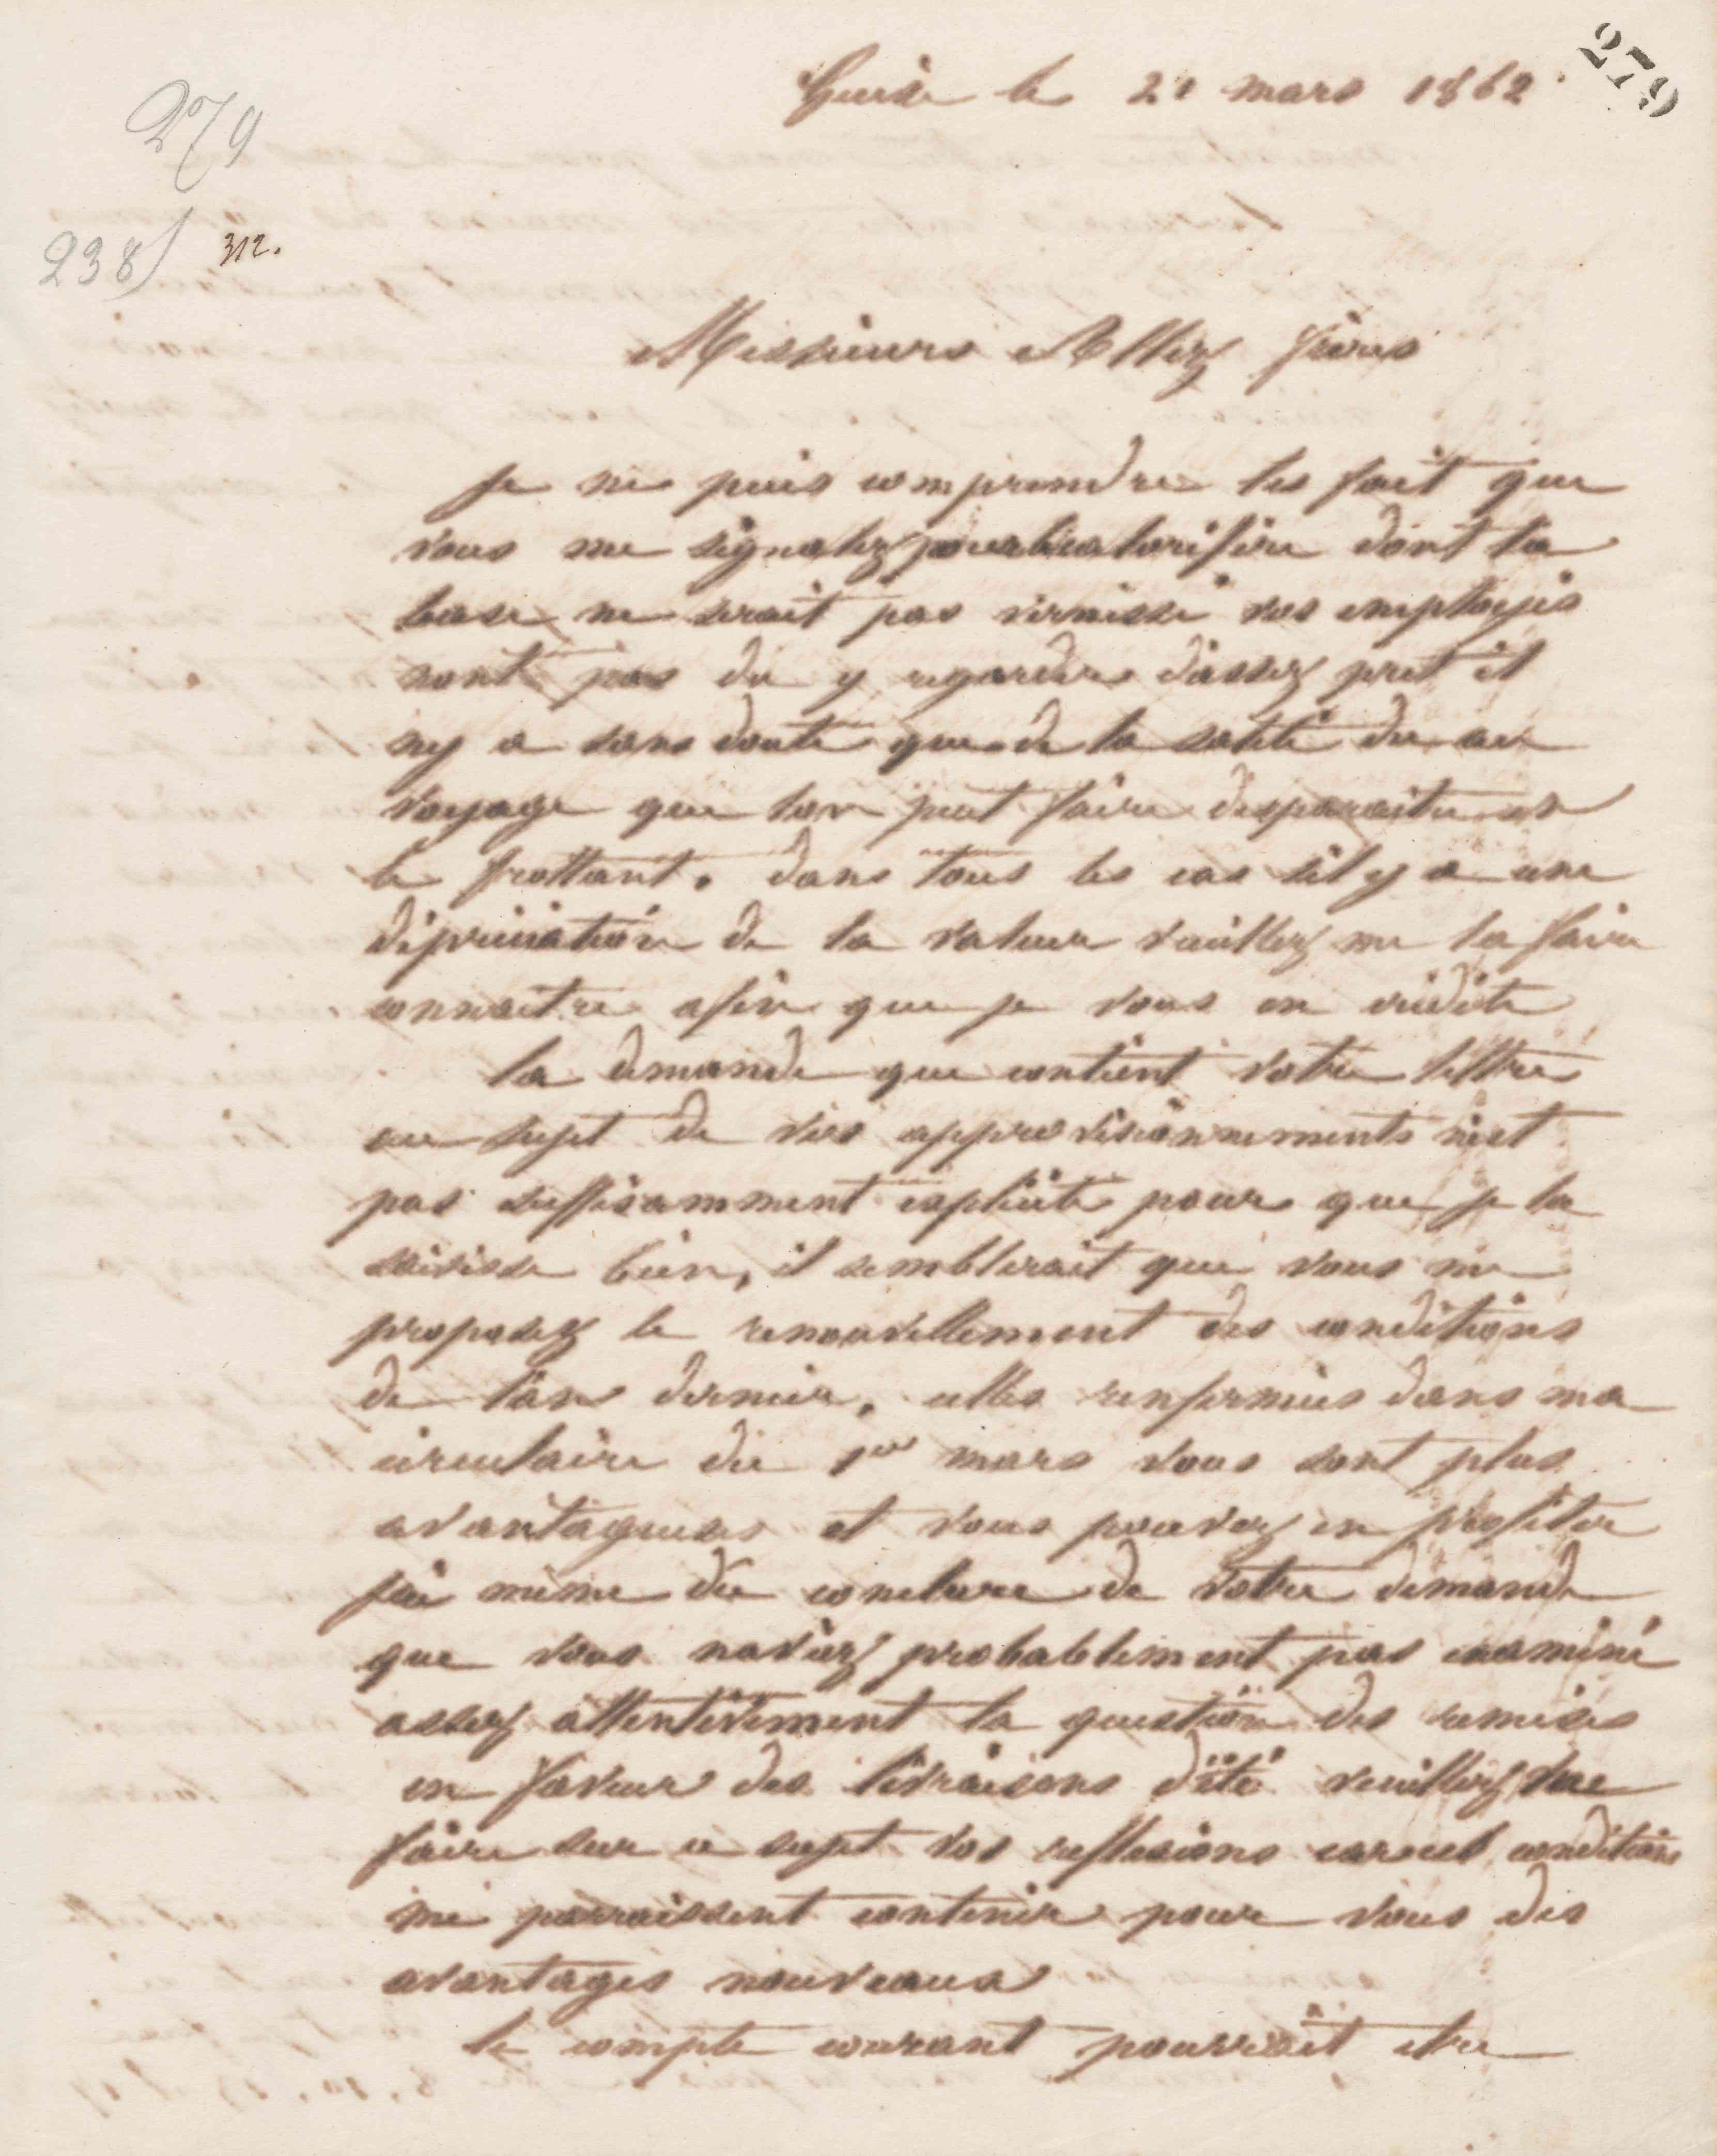 279
Guise le 21 mars 1862
279
238) 312.
Messieurs Allez frères
Je ne puis comprendre les fait que
vous me signalez pour le calorifère dont la
base ne serait pas vernissé vos employés
nont pas du y regarder d'assez pret il
ny a sans doute que de la saleté due au
voyage que lon peut faire disparaitre en
le frottant. dans tous les cas s'il y a une
dépréciation de la valeur veuillez me la faire
connaitre afin que je vous en crédite
la demande que contient votre lettre
au sujet de vos approvisionnements n'est
pas suffisamment explicite pour que je la
saisisse bien, il semblerait que vous me
proposez le renouvellement des conditions
de l'an dernier. celles renfermées dans ma
circulaire du 1er mars vous sont plus
avantageuses et vous pouvez en profiter
j'ai même du conclure de votre demande
que vous naviez probablement pas examiné
assez attentivement la question des remises
en faveur des livraisons d'été veuillez me
faire sur ce sujet vos reflexions car cest conditions
me parraissent contenir pour vous des
avantages nouveaux
le compte courant pourrait etre